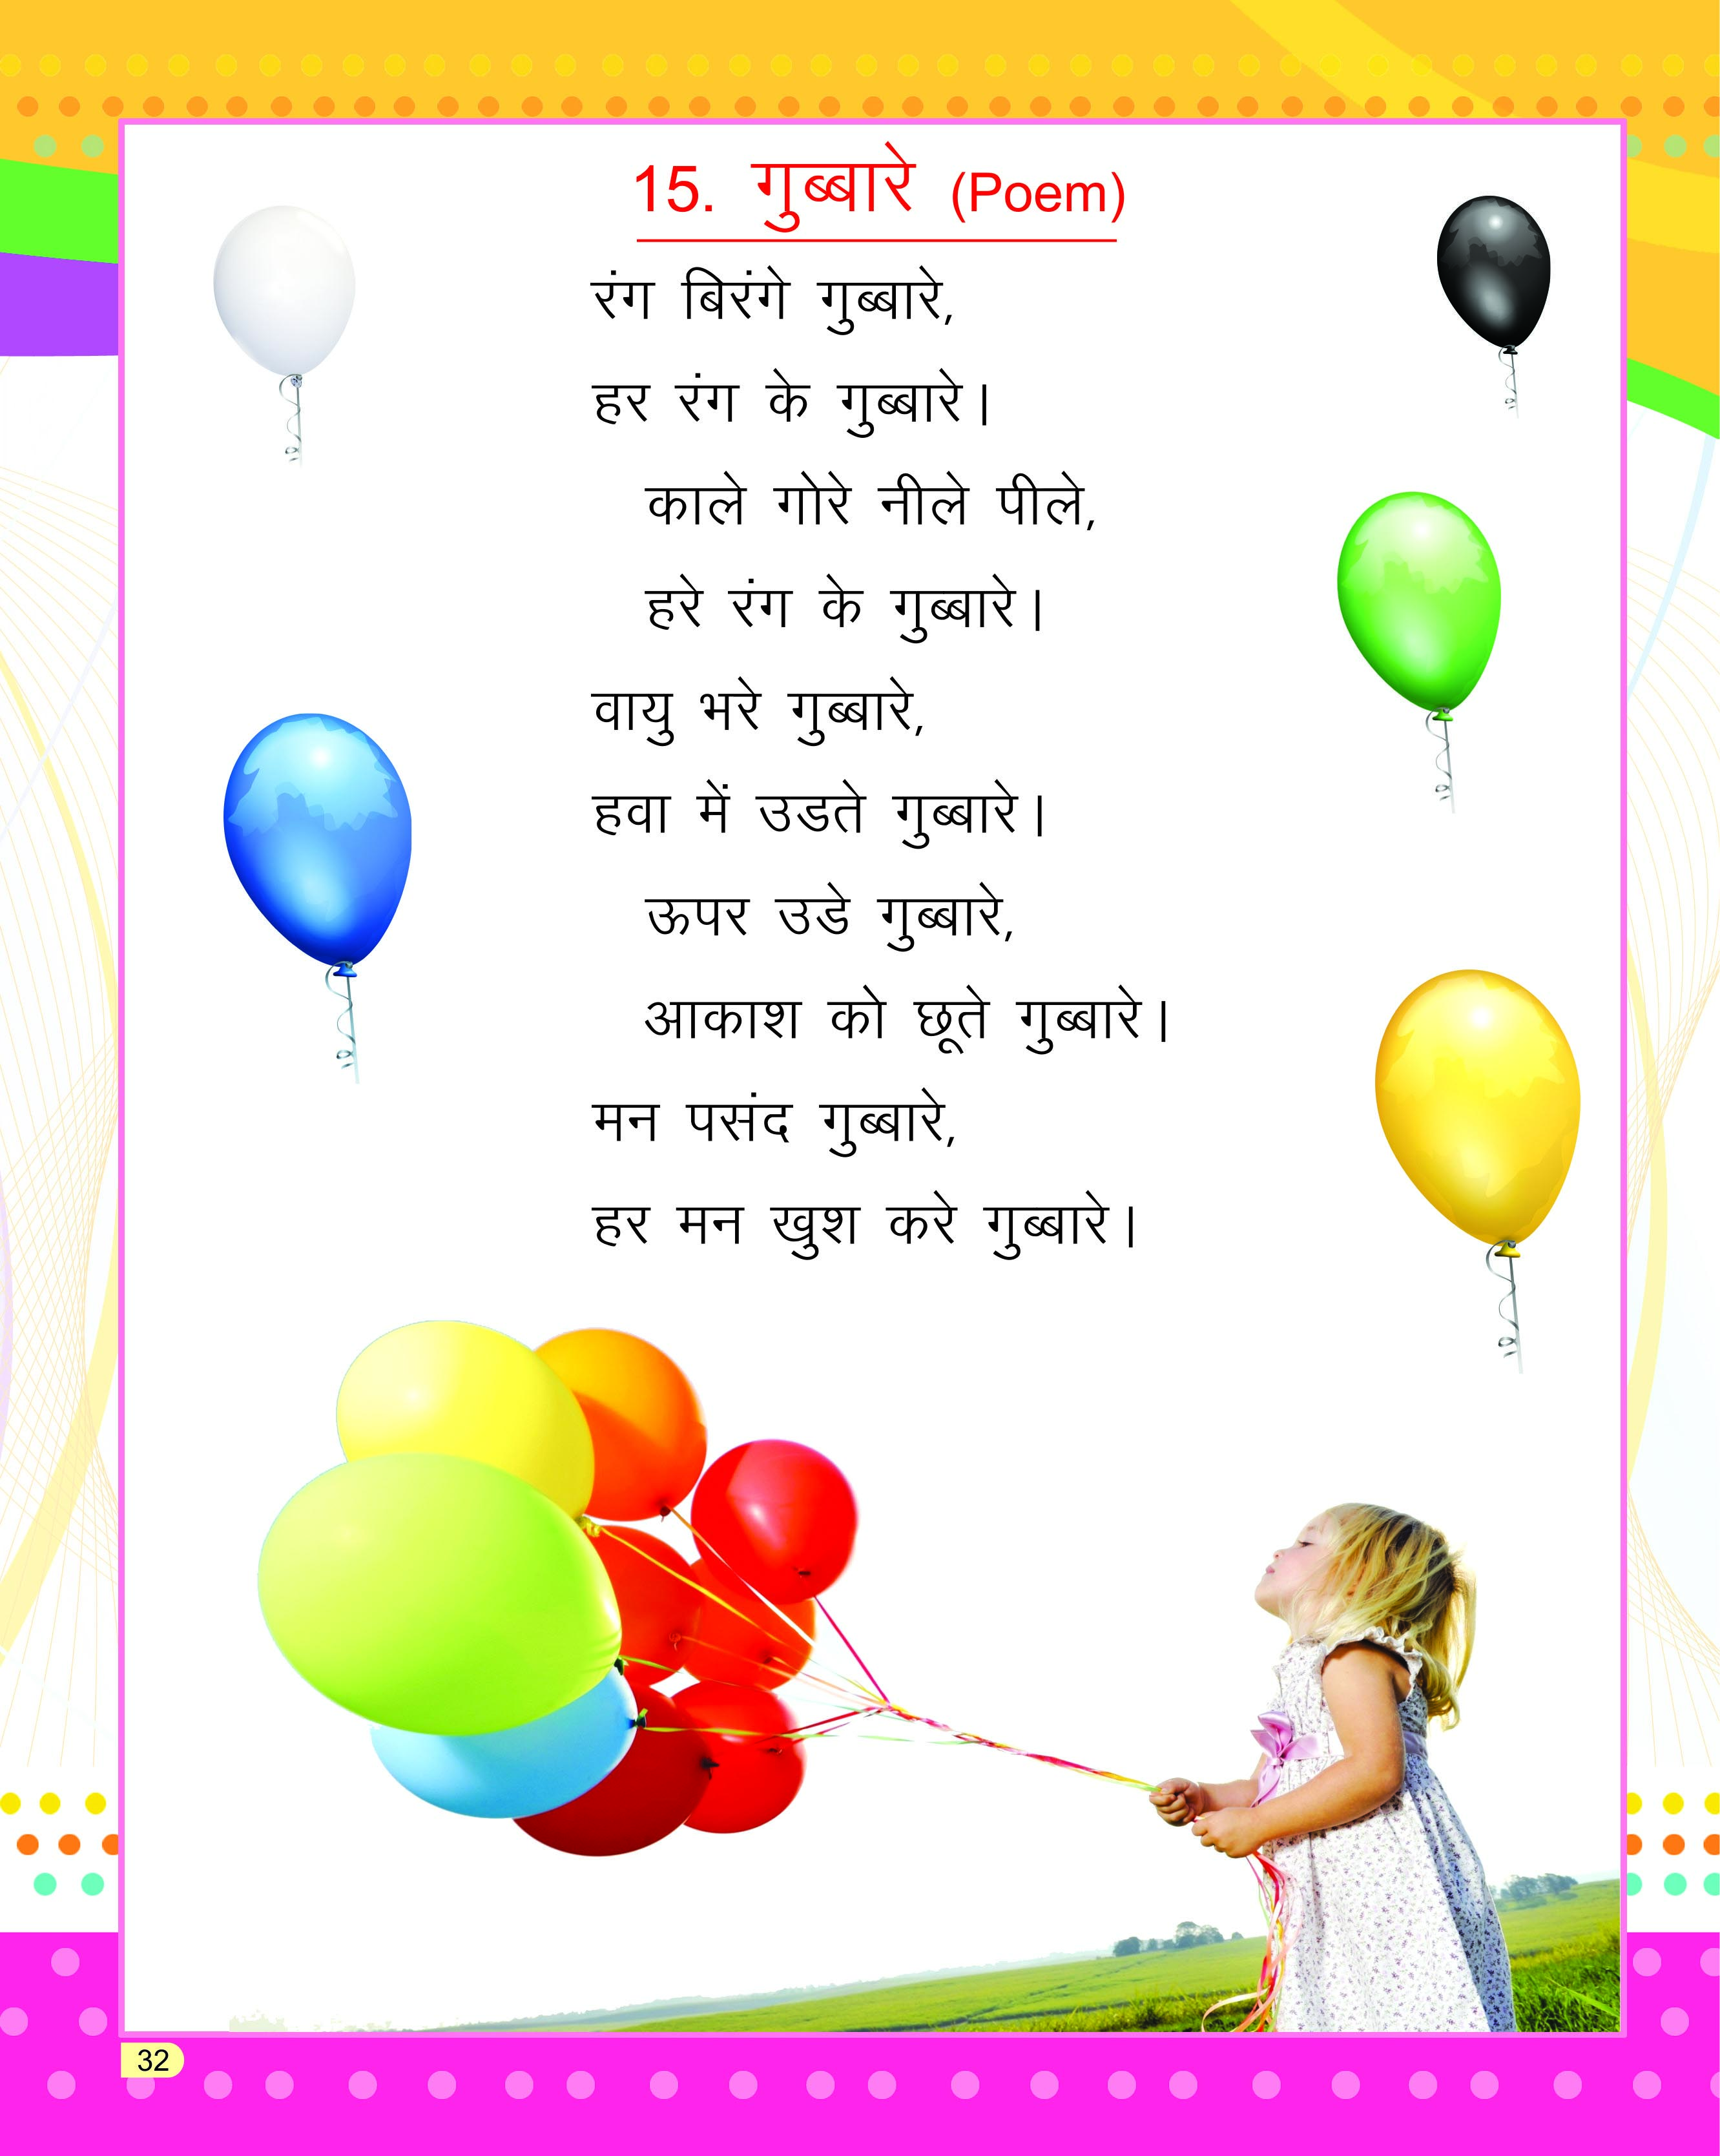 15. गुब्बारे (Poem)
रंग बिरंगे गुब्बारे,
हर रंग के गुब्बारे।
काले गोरे नीले पीले,
हरे रंग के गुब्बारे।
वायु भरे गुब्बारे,
हवा में उडते गुब्बारे।
ऊपर उडे गुब्बारे,
आकाश को छूते गुब्बारे।
मन पसंद गुब्बारे,
हर मन खुश करे गुब्बारे।
32